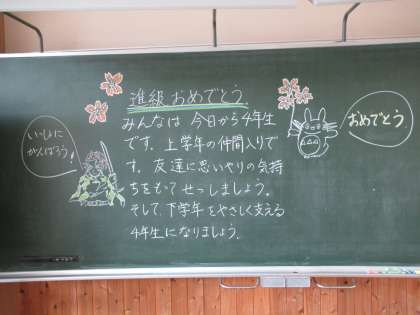 進級おめでとう.
みんなは今日から4年生
です。上学年の仲間入りで
す。友達に思いやりの気持
ちをもてせっしましょう。
そして、下学年をやさしく支える
4年生になりましょう。
いっしょに
がんばろう!
おめでとう